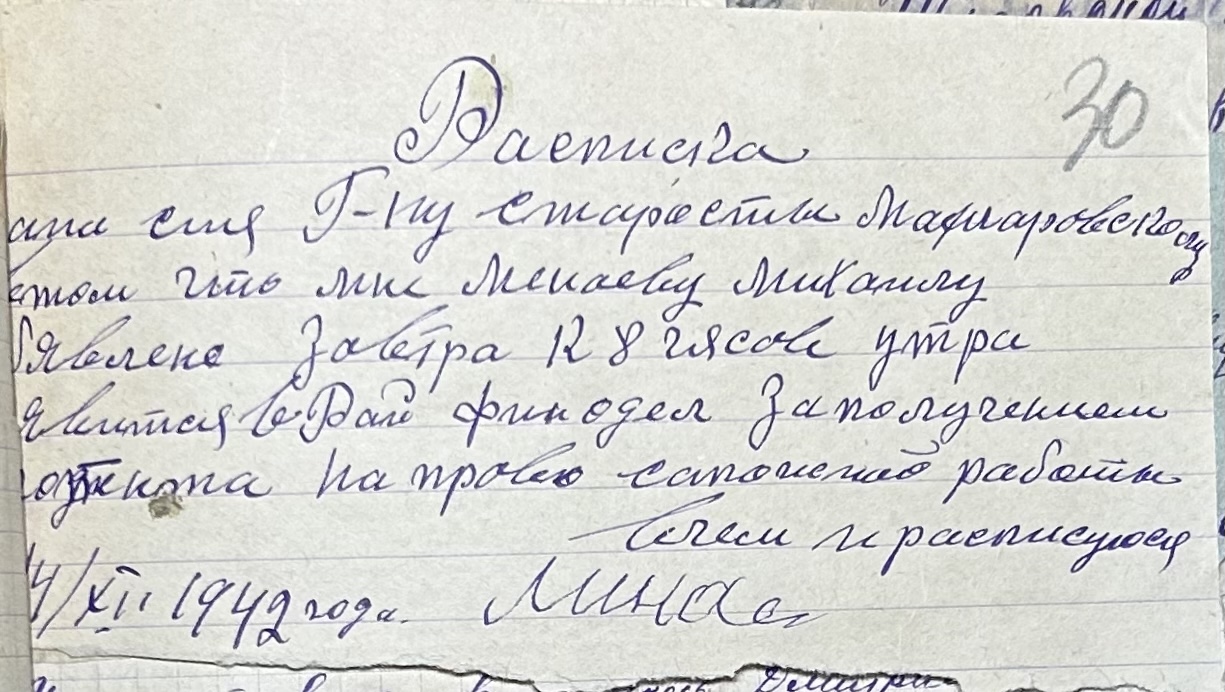 30
Расписка
дана сия Г-ну старосты Макаровскому
в том что мне Минаеву Михаилу
бявлено Завтра к 8 часов утра
явится в Рай финодел Заполучением
на право сапожной работы
в чем и расписуюся
4/XII 1942 года. Мина